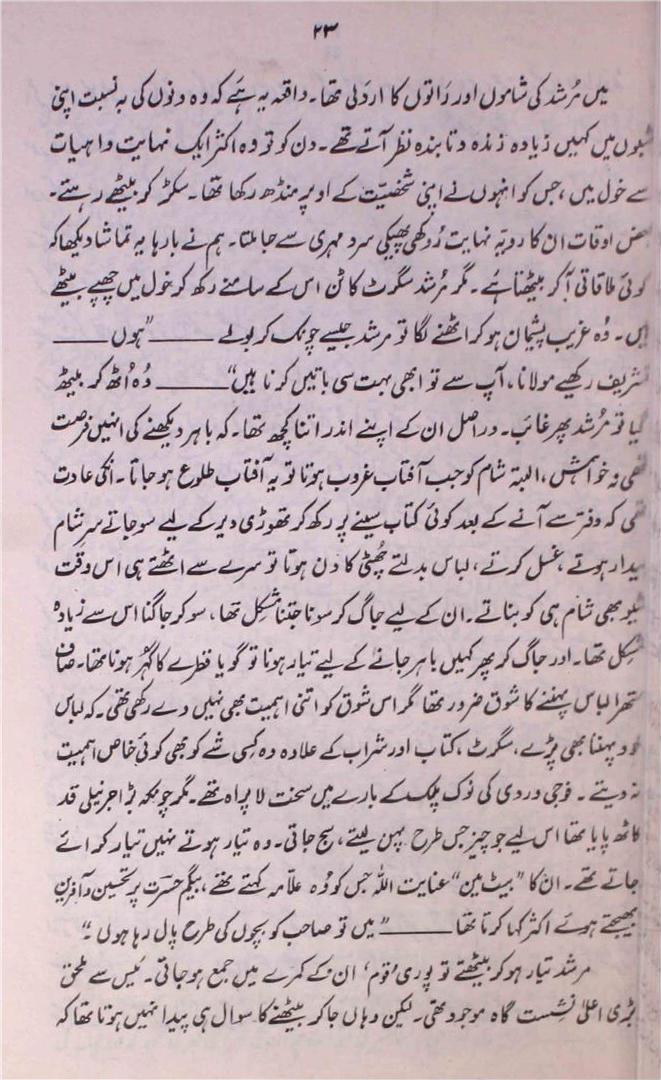 ۲۳
میں مُرشد کی شاموں اور راتوں کا اردلی تھا۔ واقعہ یہ ہے کہ وہ دنوں کی بہ نسبت اپنی
شبوں میں کہیں زیادہ زندہ و تابندہ نظر آتے تھے۔ دن کو تو وہ اکثر ایک نہایت واہیات
سے خول میں، جس کو انہوں نے اپنی شخصیّت کے اوپر منڈھ رکھا تھا۔ سکڑ کو بیٹھے رہتے۔
بعض اوقات ان کا رویّہ نہایت رُوکھی پھیکی سرد مہری سے جا ملتا۔ ہم نے بارہا یہ تماشا دیکھا کہ
کوئی ملاقاتی آ کر بیٹھتا ہے۔ مگر مُرشد سگرٹ کا ٹن اس کے سامنے رکھ کر خول میں چھپے بیٹھے
ہیں۔ وُہ غریب پشیمان ہو کر اٹھنے لگا تو مرشد جیسے چونک کر بولے ——— ”ہوں ———
تشریف رکھیے مولانا، آپ سے تو ابھی بہت سی باتیں کرنا ہیں“ ——— وُہ اُٹھ کر بیٹھ
گیا تو مُرشد پھر غائب۔ دراصل ان کے اپنے اندر اتنا کچھ تھا۔ کہ باہر دیکھنے کی انہیں فرصت
تھی نہ خواہش، البتہ شام کو جب آفتاب غروب ہوتا تو یہ آفتاب طلوع ہو جاتا۔ انکی عادت
تھی کہ دفتر سے آنے کے بعد کوئی کتاب سینے پر رکھ کر تھوڑی دیر کے لیے سو جاتے سرِ شام
بیدار ہوتے، غسل کرتے، لباس بدلتے چُھٹی کا دن ہوتا تو سرے سے اٹھتے ہی اس وقت
شیو بھی شام ہی کو بناتے۔ ان کے لیے جاگ کر سونا جتنا مشکل تھا، سو کر جاگنا اس سے زیادہ
مشکل تھا۔ اور جاگ کر پھر کہیں باہر جانے کے لیے تیار ہونا تو گویا قطرے کا گہُر ہونا تھا۔ صاف
ستھرا لباس پہننے کا شوق ضرور تھا مگر اس شوق کو اتنی اہمیت بھی نہیں دے رکھی تھی۔ کہ لباس
خود پہننا بھی پڑے، سگرٹ، کتاب اور شراب کے علاوہ وہ کسی شے کو بھی کوئی خاص اہمیت
نہ دیتے۔ فوجی وردی کی نوک پلک کے بارے میں سخت لاپراہ تھے۔ مگر چونکہ بڑا جرنیلی قد
کاٹھ پایا تھا اس لیے جو چیز جس طرح پہن لیتے، سج جاتی۔ وہ تیار ہوتے نہیں تیار کرائے
جاتے تھے۔ ان کا ”بیٹ مین“ عنایت اللہ جس کو وُہ علّامہ کہتے تھے، بیگم حسرت پر تحسین و آفرین
بھیجتے ہوئے اکثر کہا کرتا تھا ——— ”میں تو صاحب کو بچوں کی طرح پال رہا ہوں۔“
مرشد تیار ہو کر بیٹھتے تو پوری ’قوم‘ ان کے کمرے میں جمع ہو جاتی۔ میس سے ملحق
بڑی اعلیٰ نشست گاہ موجود تھی۔ لیکن وہاں جا کر بیٹھنے کا سوال ہی پیدا نہیں ہوتا تھا کہ